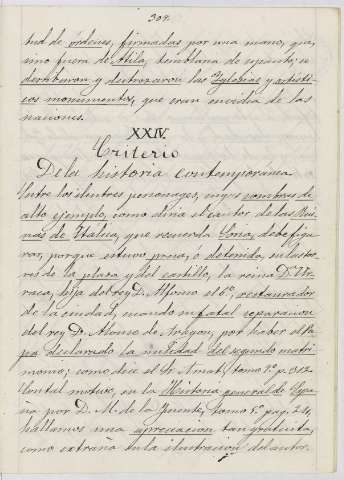 304.
tud de órdenes, firmadas por una mano, que,
sino fuera de Atila, temblaria de espanto; se
derribaron y destrozaron las Yglesias y artísti-
cos monumentos, que eran envidia de las
naciones.
XXIV.
Criterio
De la historia contemporánea
Entre los ilustres personages, cuyos nombres de
alto ejemplo, como diria el cantor de las Rui-
nas de Itálica, que recuerda Soria, debe figu-
rar, porque estuvo presa, ó detenida, en las tor-
res de la plaza y del castillo, la reina Dª Ur-
raca, hija del rey D. Alfonso el 6º, restaurador
de la ciudad, cuando su fatal separacion
del rey D. Alonso de Aragon, por haber el Pa-
pa declarado la nulidad del segundo matri-
monio; como dice el Sr. tomo 2º p. 312
Con tal motivo, en la Historia general de Espa-
ña por D. M. de la Fuente, tomo 5º pag. 24,
hallamos una apreciacion tan gratuita,
como extraña en la ilustracion del autor.